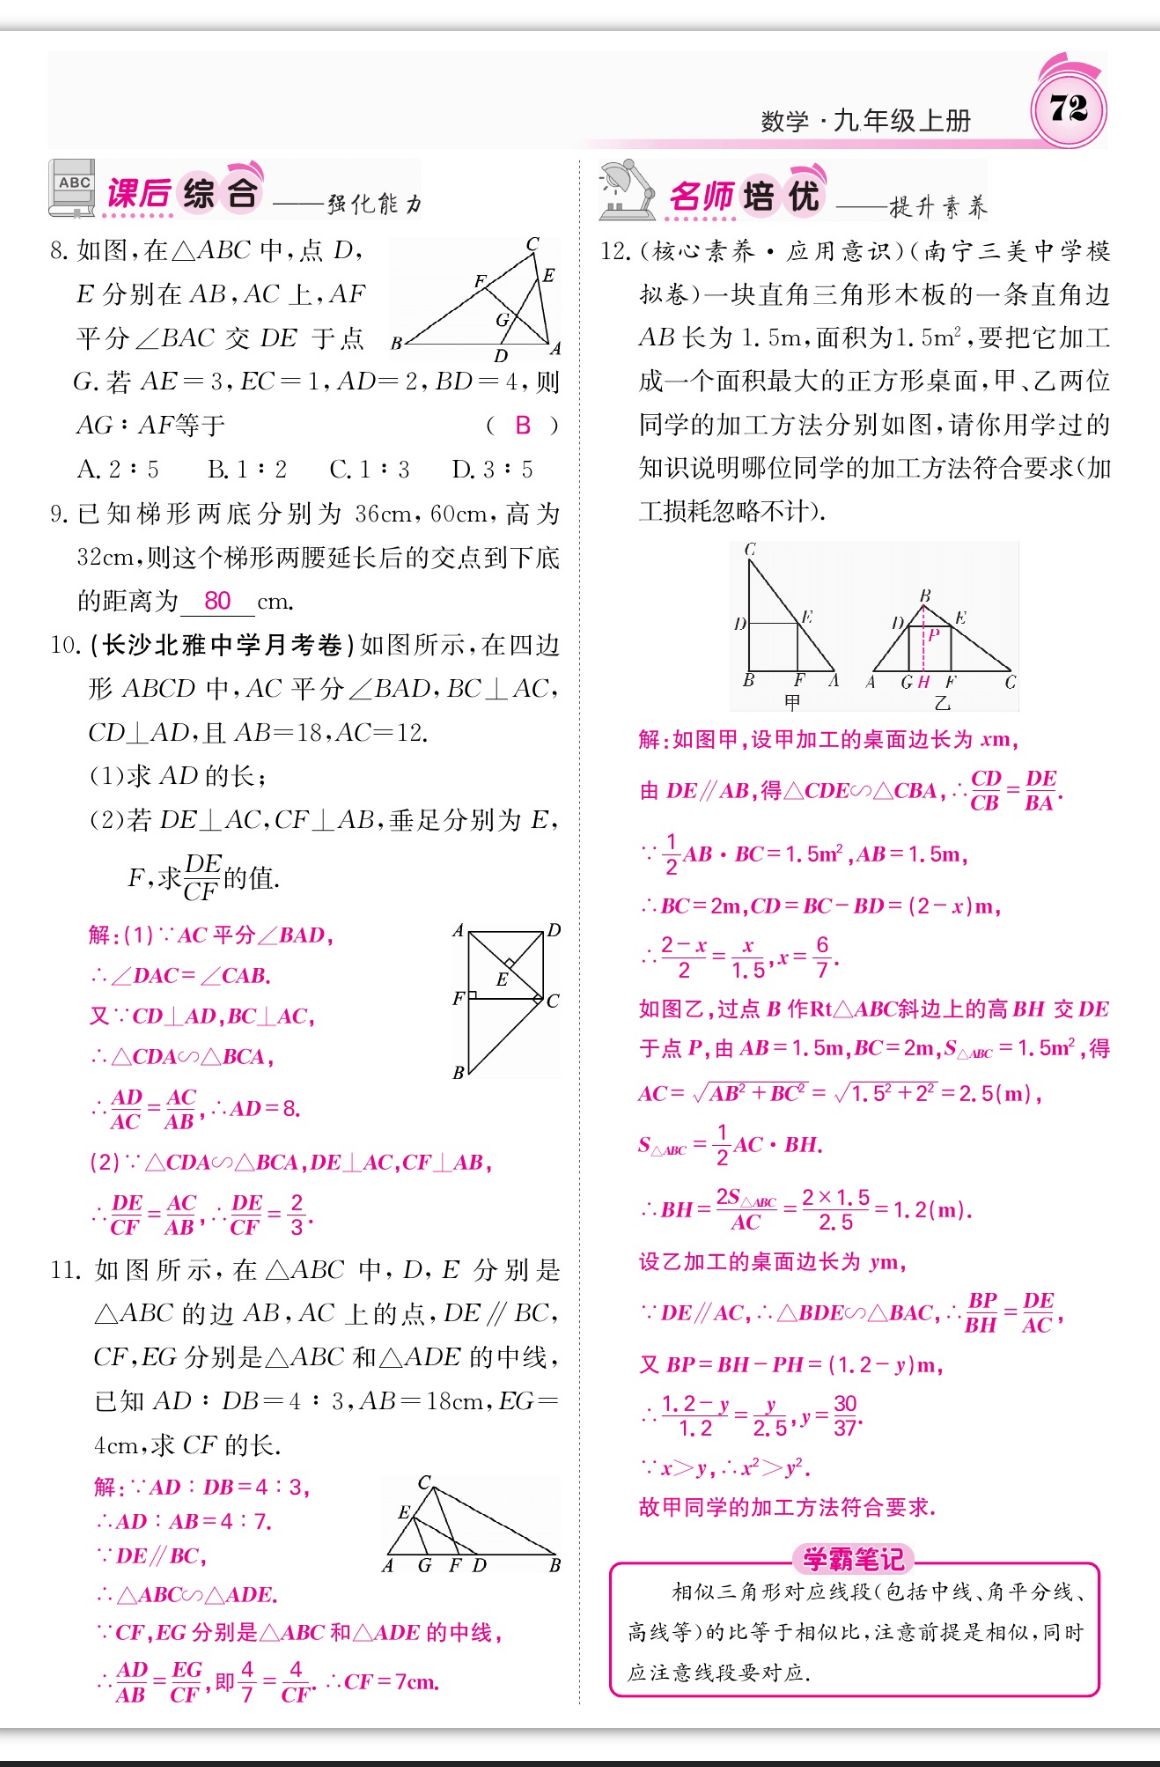 数学·九年级上册
72
ABC
课后综合——强化能力
8. 如图,在△ABC 中,点 D,
E 分别在 AB,AC 上,AF
平分∠BAC 交 DE 于点
G. 若 AE=3,EC=1,AD=2,BD=4,则
AG∶AF等于 ( B )
A. 2∶5 B. 1∶2 C. 1∶3 D. 3∶5
C
F
E
G
B
D
A
9. 已知梯形两底分别为 36cm,60cm,高为
32cm,则这个梯形两腰延长后的交点到下底
的距离为 80 cm.
10. (长沙北雅中学月考卷)如图所示,在四边
形 ABCD 中,AC 平分∠BAD,BC⊥AC,
CD⊥AD,且 AB=18,AC=12.
(1)求 AD 的长;
(2)若 DE⊥AC,CF⊥AB,垂足分别为 E,
F,求DE/CF的值.
解:(1)∵AC 平分∠BAD,
∴∠DAC=∠CAB.
又∵CD⊥AD,BC⊥AC,
∴△CDA∽△BCA,
∴AD/AC=AC/AB,∴AD=8.
A
D
E
F
C
B
(2)∵△CDA∽△BCA,DE⊥AC,CF⊥AB,
∴DE/CF=AC/AB,∴DE/CF=2/3.
11. 如图所示,在△ABC 中,D,E 分别是
△ABC 的边 AB,AC 上的点,DE∥BC,
CF,EG 分别是△ABC 和△ADE 的中线,
已知 AD∶DB=4∶3,AB=18cm,EG=
4cm,求 CF 的长.
解:∵AD∶DB=4∶3,
∴AD∶AB=4∶7.
∵DE∥BC,
∴△ABC∽△ADE.
∵CF,EG 分别是△ABC 和△ADE 的中线,
∴AD/AB=EG/CF,即4/7=4/CF. ∴CF=7cm.
C
E
A G F D B
名师培优——提升素养
12. (核心素养·应用意识)(南宁三美中学模
拟卷)一块直角三角形木板的一条直角边
AB 长为 1.5m,面积为1.5m²,要把它加工
成一个面积最大的正方形桌面,甲、乙两位
同学的加工方法分别如图,请你用学过的
知识说明哪位同学的加工方法符合要求(加
工损耗忽略不计).
C
D E
B F A
甲
B
D E
P
A G H F C
乙
解:如图甲,设甲加工的桌面边长为 xm,
由 DE∥AB,得△CDE∽△CBA,∴CD/CB=DE/BA.
∵1/2AB·BC=1.5m²,AB=1.5m,
∴BC=2m,CD=BC-BD=(2-x)m,
∴2-x/2=x/1.5,x=6/7.
如图乙,过点 B 作Rt△ABC斜边上的高 BH 交 DE
于点 P,由 AB=1.5m,BC=2m,S△ABC=1.5m²,得
AC=√AB²+BC²=√1.5²+2²=2.5(m),
S△ABC=1/2AC·BH.
∴BH=2S△ABC/AC=2×1.5/2.5=1.2(m).
设乙加工的桌面边长为 ym,
∵DE∥AC,∴△BDE∽△BAC,∴BP/BH=DE/AC,
又 BP=BH-PH=(1.2-y)m,
∴1.2-y/1.2=y/2.5,y=30/37.
∵x>y,∴x²>y².
故甲同学的加工方法符合要求.
学霸笔记
相似三角形对应线段(包括中线、角平分线、
高线等)的比等于相似比,注意前提是相似,同时
应注意线段要对应.